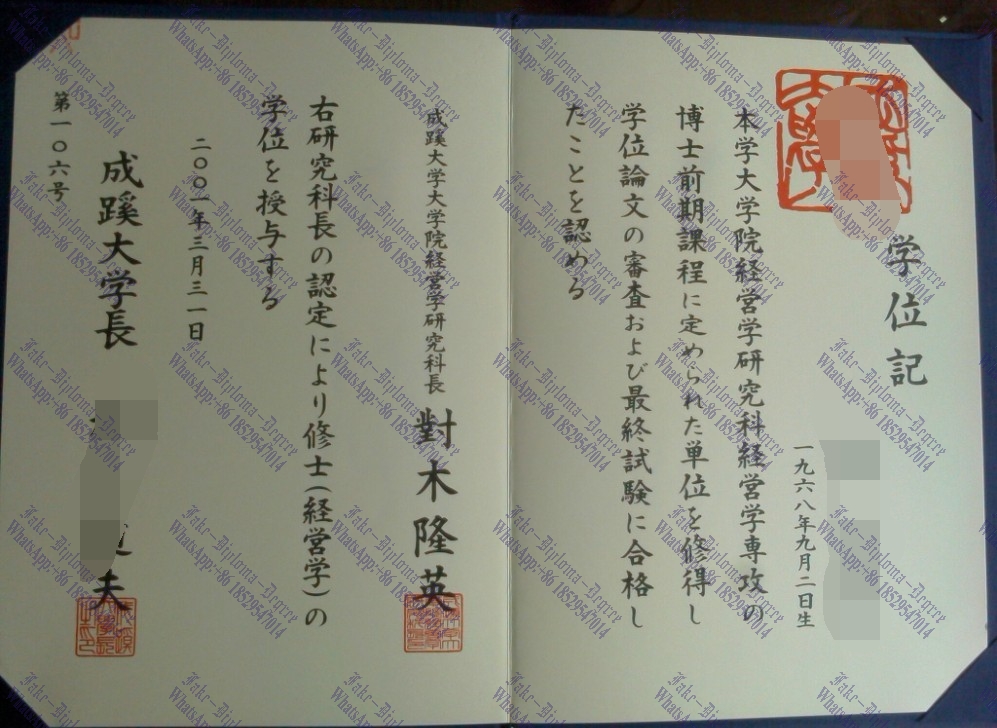 学位記
一九六八年九月二日生
本学大学院経営学研究科経営学専攻の
博士前期課程に定められた単位を修得し
学位論文の審査および最終試験に合格し
たことを認める
成蹊大学大学院経営学研究科長 對木隆英
右研究科長の認定により修士(経営学)の
学位を授与する
二〇〇一年三月三一日
成蹊大学長
夫
第一〇六号
Jake-Diploma-Degree
WhatsApp:+86 18529547014